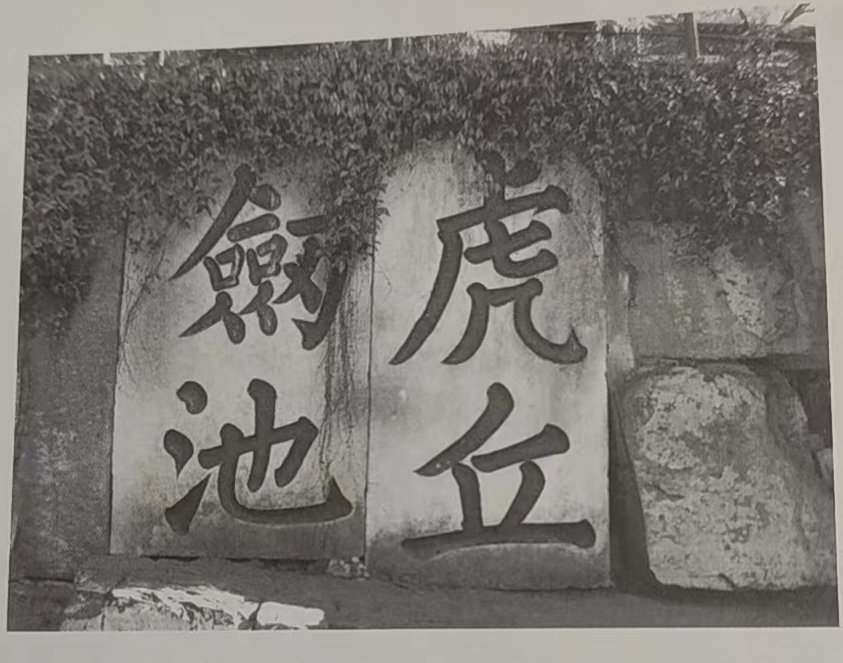 虎丘
劍池